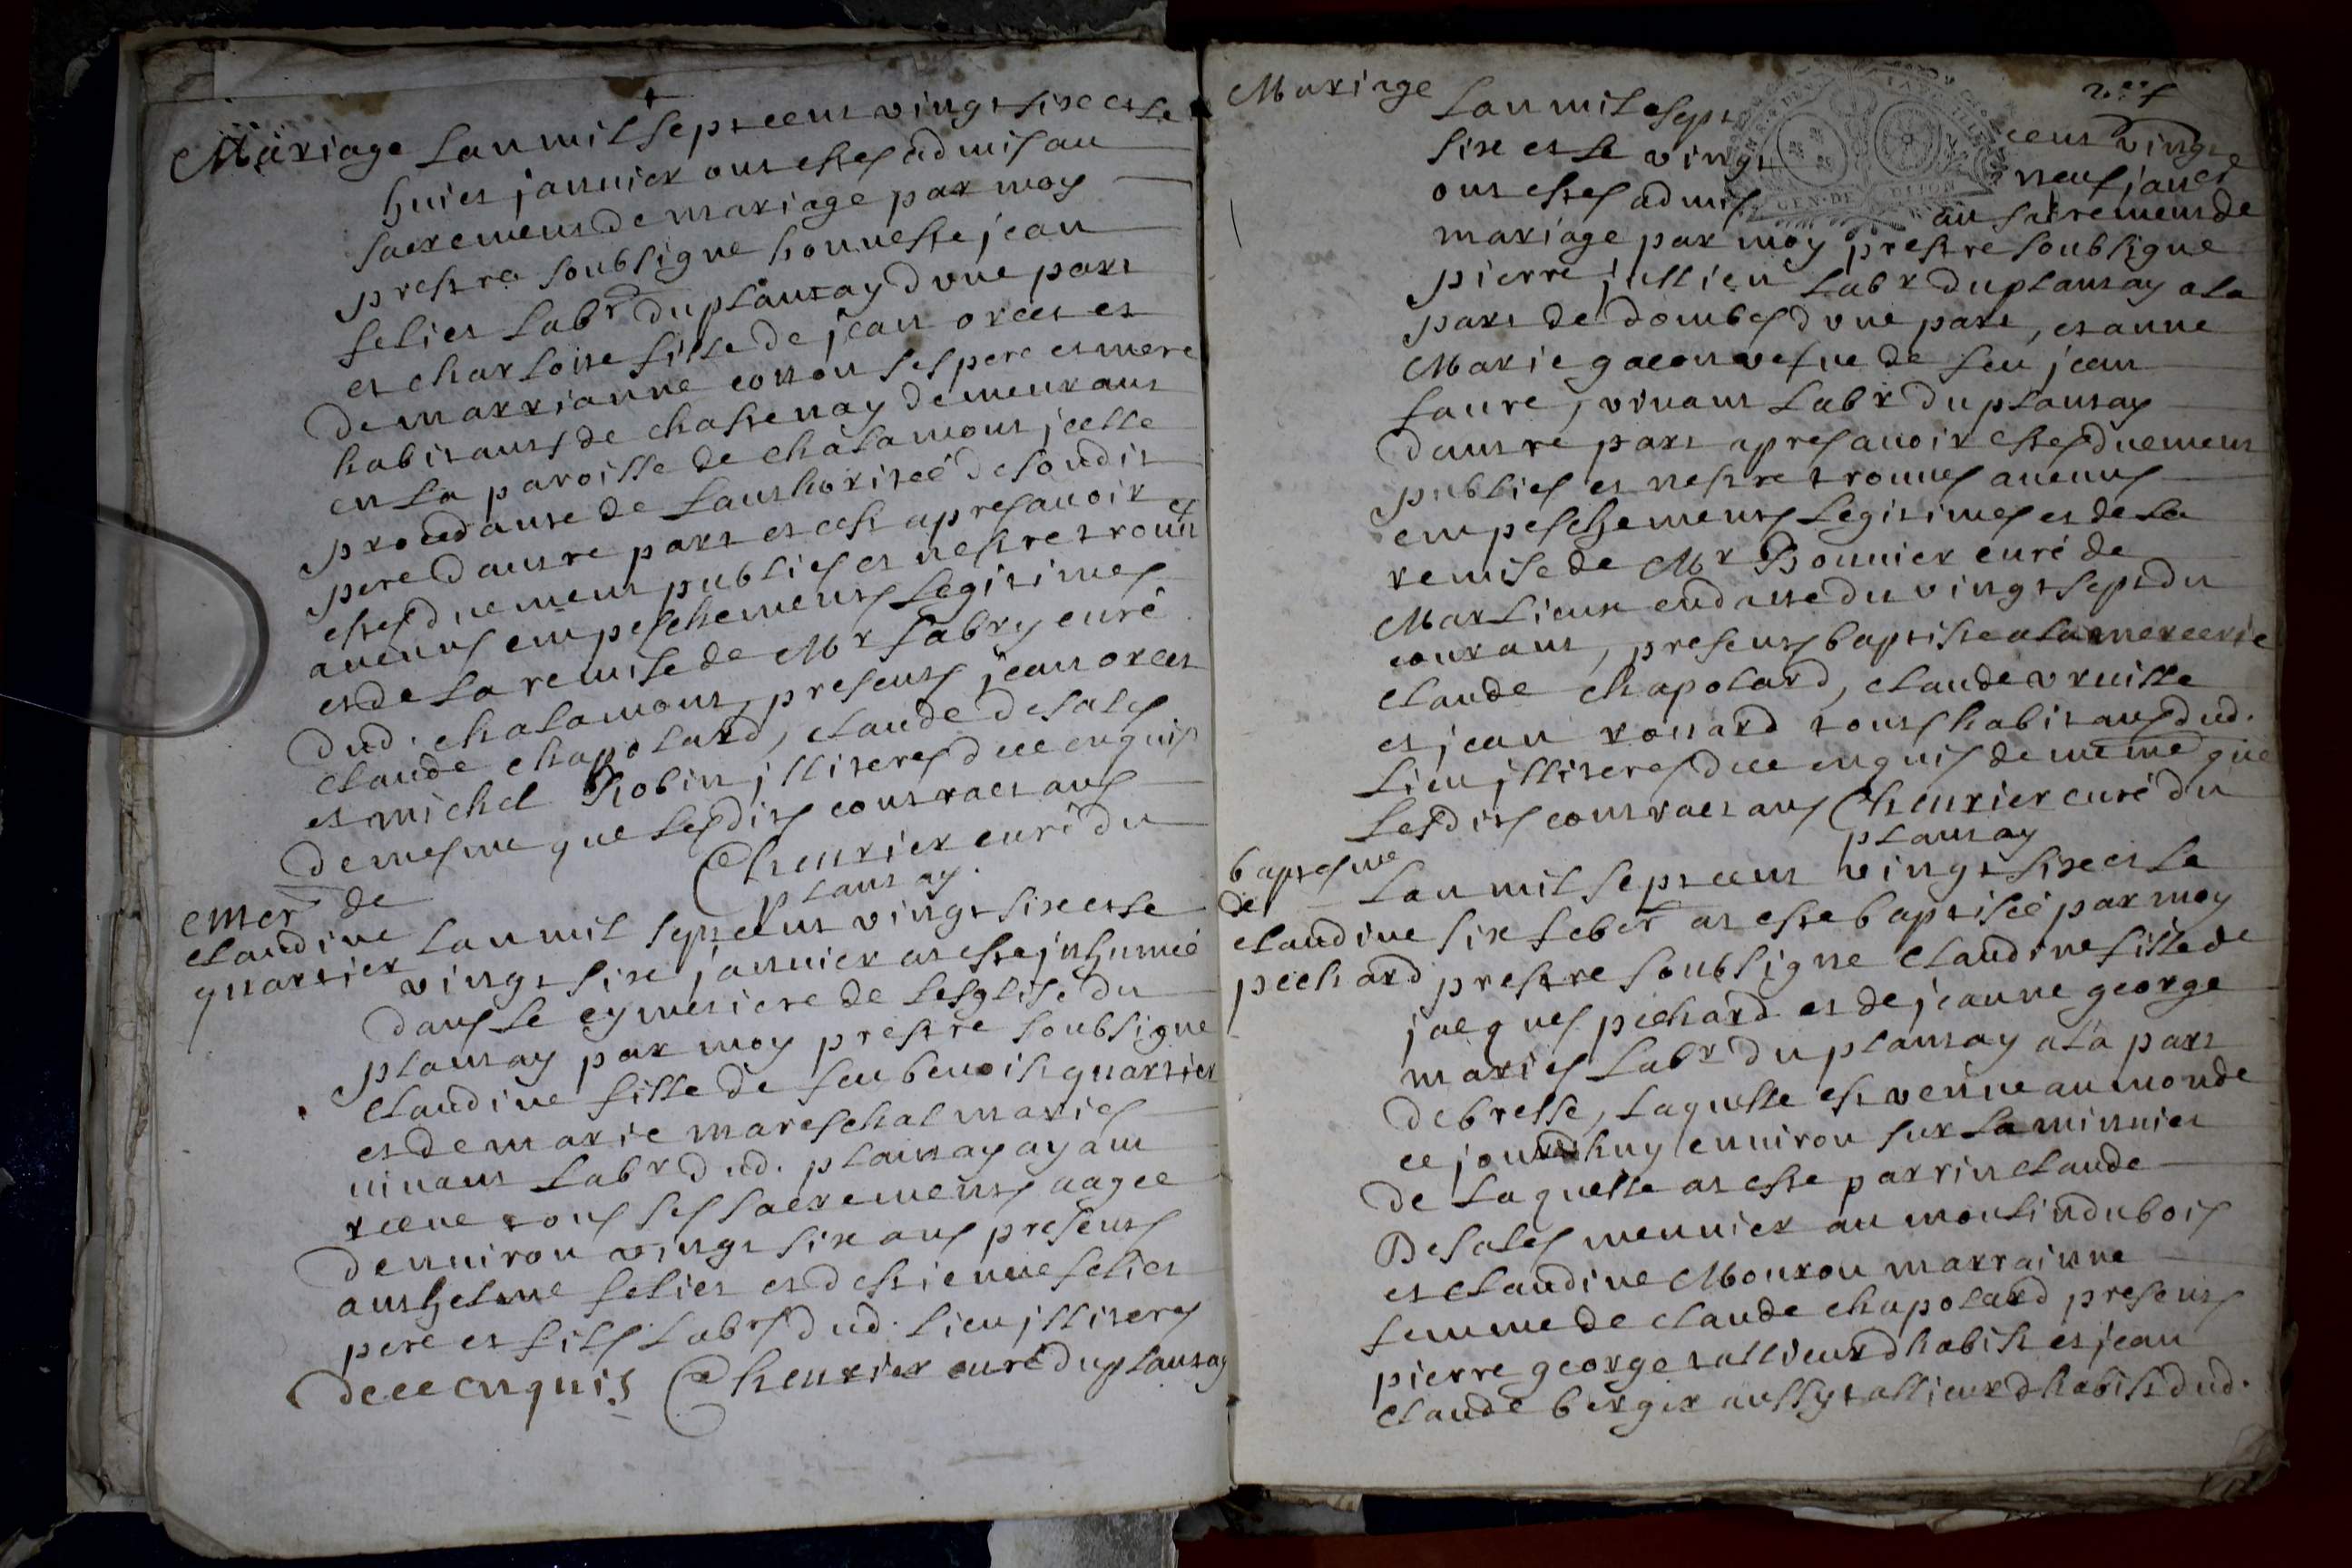 Mariage Lan mil sept cent vingt six et le
huict janvier ont estes admis au
sacrement de mariage par moy
prestre soubsigne honneste jean
felict labr du plantay dune part
et charlotte fille de jean orcet et
de marrianne cotton ses pere et mere
habitants de chastenay demeurant
en la paroisse de chalamont icelle
procedante de lauthoriteé de sondit
pere dautre part et cest apres avoir
estes duement publies et nestre trouvés
aucuns empeschements legitimes
et de la remise de Mr fabry curé
dud. chalamont, presents jean orcet
claude chapolard, claude desales
et michel Robin illiteres de ce enquis
de mesme que lesdits contractans
Cheurier curé du
plantay.
enterr de
claudine
quartier
Lan mil sept cent vingt six et le
vingt six janvier at este inhumeé
dans le cymetiere de lesglise du
plantay par moy prestre soubsigne
claudine fille de feu benoist quartier
et de marie mareschal maries
vivant labr dud. plantay ayant
receue tous ses sacrements aagee
denviron vingt six ans presents
anthelme feliet et destienne feliet
pere et fils labrs dud. lieu illiteres
de ce enquis Cheurier curé du plantay

Mariage
Lan mil sept cent vingt
six et le vingt neuf janer
ont estes admis au sacrement de
mariage par moy prestre soubsigne
pierre jullien labr du plantay a la
part de dombes dune part, et anne
Marie gacon vefue de feu jean
faure, vivant labr du plantay
dautre part apres avoir estes duement
publies et nestre trouves aucuns
empeschements legitimes et de la
remise de Mr Bonnier curé de
Marlieux en datte du vingt sept du
courant, presents baptiste alamercerie
claude chapolard, claude vruille
et jean rossard tous habitans dud.
lieu illiteres de ce enquis de meme que
lesdits contractans Cheurier curé du
plantay
baptesme
de
claudine
pechard
Lan mil sept cent vingt six et le
six feber at este baptiseé par moy
prestre soubsigne claudine fille de
jacques pechard et de jeanne george
maries labr du plantay a la part
de bresse, laquelle est venue au monde
ce jourdhuy environ sur la minuict
de laquelle at este parrin claude
Desales meunier au moulin du bois
et claudine Mouron marrainne
femme de claude chapolard presents
pierre george tallieur dhabist et jean
claude berger aussy tallieur dhabist dud.